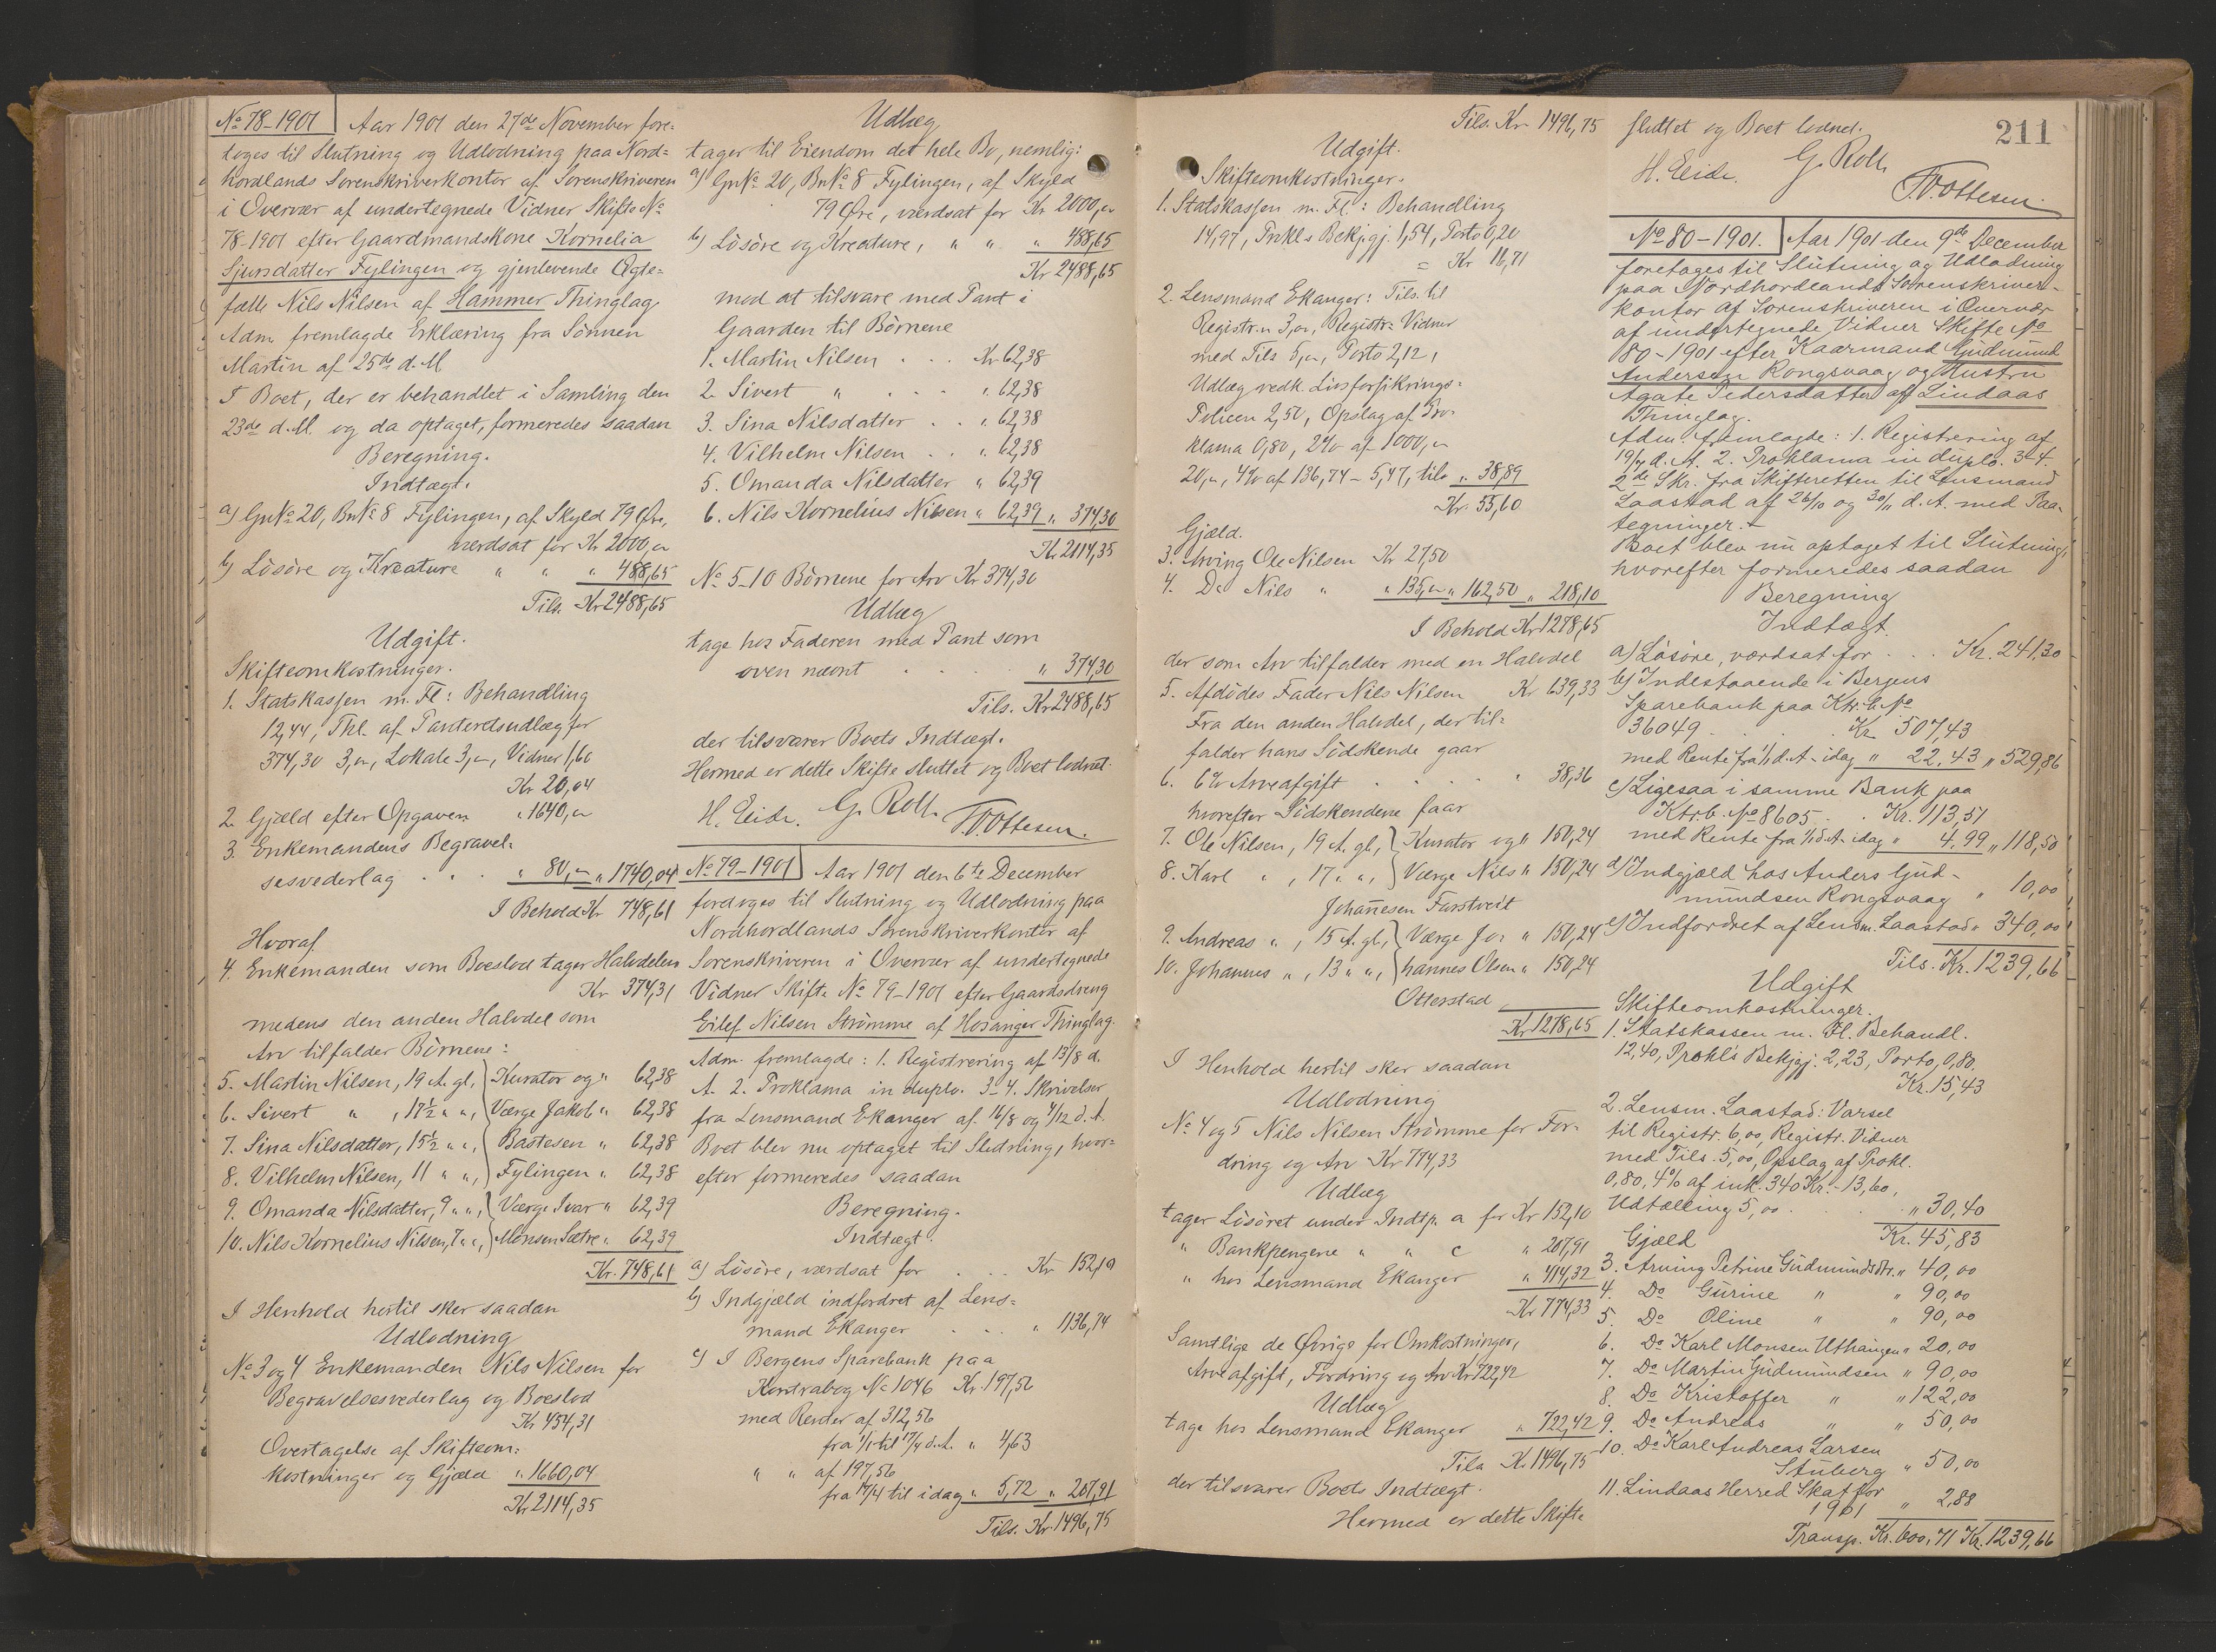 No 78-1901 Aar 1901 den 27de November fore=
toges til Slutning og Udlodning paa Nord=
hordlands Sorenskriverkontor af Sorenskriveren
i Overvær af undertegnede Vidner Skifte No
78-1901 efter Gaardmandskone Kornelia
Sjursdatter Fylingen og gjenlevende Ægte=
fælle Nils Nilsen af Hammer Thinglag.
Adm. fremlagde Erklæring fra Sönnen
Martin af 25de d. M.
I Boet, der er behandlet i Samling den
23de d. M. og da optaget, formeredes saadan
Beregning.
Indtægt.
a) GnNo 20, BnNo 8 Fylingen, af Skyld 79 Øre,
værdsat for Kr 2000,"
b) Lösöre og Kreature " " " 488,65
Tils. Kr 2488,65
Udgift.
Skifteomkostninger.
1. Statskassen m. Fl: Behandling
12,44, Thl. af Panteretsudlæg for
374,30 3,", Lokale 3,", Vidner 1,60
Kr 20,04
2. Gjæld efter Opgaven " 1640,"
3. Enkemandens Begravel=
sesvederlag . . . " 80,"  " 1740,04
I Behold Kr 748,61
Hvoraf
4. Enkemanden som Boeslod tager Halvdelen
Kr 374,31
medens den anden Halvdel som
Arv tilfalder Börnene:
5. Martin Nilsen, 19 A. gl, Kurator og " 62,38
6. Sivert " , 17½ " ", Værge Jakob " 62,38
7. Sina Nilsdatter, 15½ " ", Bastesen " 62,38
8. Vilhelm Nilsen, 11 " ", Fylingen " 62,38
9. Omanda Nilsdatter, 9 " ", Værge Ivar " 62,39
10. Nils Kornelius Nilsen, 7 " ", Monsen Sætre " 62,39
Kr. 748,61
I Henhold hertil sker saadan
Udlodning
No 3 og 4 Enkemanden Nils Nilsen for
Begravelsesvederlag og Boeslod
Kr 454,31
Overtagelse af Skifteom=
kostninger og Gjæld " 1660,04
Kr 2114,35
Udlæg
tager til Eiendom det hele Bo, nemlig:
a) GnNo 20, BnNo 8 Fylingen, af Skyld
79 Øre, værdsat for Kr 2000,"
b) Lösöre og Kreature, " " " 488,65
Kr 2488,65
mod at tilsvare med Pant i
Gaarden til Börnene
1. Martin Nilsen . . . Kr 62,38
2. Sivert " . . . " 62,38
3. Sina Nilsdatter . . " 62,38
4. Vilhelm Nilsen . . " 62,38
5. Omanda Nilsdatter " 62,39
6. Nils Kornelius Nilsen " 62,39 " 374,30
Kr 2114,35
No 5-10 Börnene for Arv Kr 374,30
Udlæg
tage hos Faderen med Pant som
oven nævnt . . . " 374,30
Tils. Kr 2488,65
der tilsvarer Boets Indtægt.
Hermed er dette Skifte sluttet og Boet lodnet.
H. Eide. G. Roll. T. Ottesen.
No 79-1901 Aar 1901 den 6te December
foretoges til Slutning og Udlodning paa
Nordhordlands Sorenskriverkontor af
Sorenskriveren i Overvær af undertegnede
Vidner Skifte No 79-1901 efter Gaardsdreng
Eilef Nilsen Strömme af Hosanger Thinglag.
Adm. fremlagde: 1. Registrering af 13/8 d.
A. 2. Proklama in duplo. 3-4. Skrivelser
fra Lensmand Ekanger af 16/8 og 4/12 d. A.
Boet blev nu optaget til Slutning, hvor=
efter formeredes saadan
Beregning.
Indtægt.
a) Lösöre, værdsat for . . . Kr 152,10
b) Indgjæld indfordret af Lens=
mand Ekanger . . . " 1136,74
c) I Bergens Sparebank paa
Kontrabog No 1046 Kr. 197,56
med Renter af 312,56
fra 1/1 til 17/4 d. A. " 4,63
" " af 197,56
fra 17/4 til idag " 5,72 " 207,91
Tils. Kr. 1496,75
Tils. Kr 1496,75
Udgift.
Skifteomkostninger.
1. Statskassen m. Fl.: Behandling
14,97, Prokl.s Bekjgj. 1,54, Porto 0,20
= Kr 16,71
2. Lensmand Ekanger: Tils. til
Registr.n 3,", Registr.s Vidner
med Tils 5,", Porto 2,12,
Udlæg vedk. Livsforsikrings=
Policen 2,50, Opslag af Pro=
klama 0,80, 2% af 1000,"
20,", 4% af 136,74 - 5,47, tils " 38,89
Kr. 55,60
Gjæld.
3. Arving Ole Nilsen Kr 27,50
4. Do Nils " " 135," " 162,50 " 218,10
I Behold Kr 1278,65
der som Arv tilfalder med en Halvdel
5. Afdödes Fader Nils Nilsen Kr 639,33
Fra den anden Halvdel, der til=
falder hans Södskende gaar
6. 6% Arveafgift . . . . " 38,36
hvorefter Södskendene faar
7. Ole Nilsen, 19 A. gl, Kurator og " 150,24
8. Karl " , 17 " ", Værge Nils " 150,24
Johannesen Farstveit
9. Andreas " , 15 A. gl, Værge Jo= " 150,24
10. Johannes " , 13 " ", hannes Olsen " 150,24
Otterstad
Kr 1278,65
I Henhold hertil sker saadan
Udlodning
No 4 og 5 Nils Nilsen Strömme for For=
dring og Arv Kr 774,33
Udlæg
tager Lösöret under Indtp. a for Kr 152,10
" Bankpengene " " c " 207,91
" hos Lensmand Ekanger " 414,32
Kr 774,33
Samtlige de Øvrige for Omkostninger,
Arveafgift, Fordring og Arv Kr 722,42
Udlæg
tage hos Lensmand Ekanger " 722,42
Tils Kr. 1496,75
der tilsvarer Boets Indtægt.
Hermed er dette Skifte
211
sluttet og Boet lodnet.
H. Eide. G. Roll.
T. Ottesen.
No 80-1901. Aar 1901 den 9de December
foretoges til Slutning og Udlodning
paa Nordhordlands Sorenskriver-
kontor af Sorenskriveren i Overvær
af undertegnede Vidner Skifte No
80-1901 efter Kaarmand Gudmund
Andersen Rongsvaag og Hustru
Agate Pedersdatter af Lindaas
Thinglag.
Adm. fremlagde: 1. Registrering af
19/7 d. A. 2. Proklama in duplo. 3-4.
2de Skr. fra Skifteretten til Lensmand
Laastad af 26/10 og 30/11 d. A. med Paa-
tegninger.
Boet blev nu optaget til Slutning,
hvorefter formeredes saadan
Beregning
Indtægt.
a) Lösöre, værdsat for . . . Kr. 241,30
b) Indestaaende i Bergens
Sparebank paa Ktr. b. No
36049 . . . Kr. 507,43
med Rente fra 1/1 d. A. - idag " 22,43 " 529,86
c) Ligesaa i samme Bank paa
Ktr. b. No 8605 . . Kr. 113,51
med Rente fra 1/1 d. A. idag " 4,99 " 118,50
d) Indgjæld hos Anders Gud-
mundsen Rongsvaag " 10,00
e) Indfordret af Lensm. Laastad " 340,00
Tils. Kr. 1239,66
Udgift
Skifteomkostninger.
1. Statskassen m. Fl. Behandl.
12,40, Prokl's Bekjgj. 2,23, Porto, 0,80.
Kr. 15,43
2. Lensm. Laastad: Varsel
til Registr. 6,00, Registr. Vidner
med Tils. 5,00, Opslag af Prokl.
0,80, 4% af ink. 340 Kr. - 13,60,
Udtælling 5,00 . . . " 30,40
Kr. 45,83
Gjæld
3. Arving Petrine Gudmundsdtr. " 40,00
4. Do Gurine " " 90,00
5. Do Oline " " 90,00
6. Do Karl Monsen Uthaugen " 20,00
7. Do Martin Gudmundsen " 90,00
8. Do Kristoffer " " 122,00
9. Do Andreas " " 50,00
10. Do Karl Andreas Larsen
Stuberg " 50,00
11. Lindaas Herred Skat for
1901 " 2,88
Transp. Kr. 600,71 Kr. 1239,66